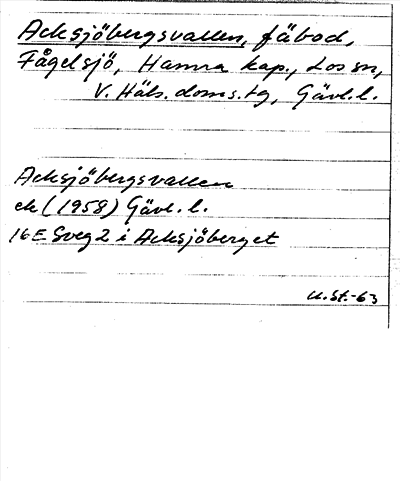 Acksjöbergsvallen, fäbod,
Fågelsjö, Hamra kap., Los sn,
V. Häls. doms.tg, Gävl.l.
Acksjöbergsvallen
ek (1958) Gävl. l.
16E Sveg 2 i Acksjöberget
U.St.-63